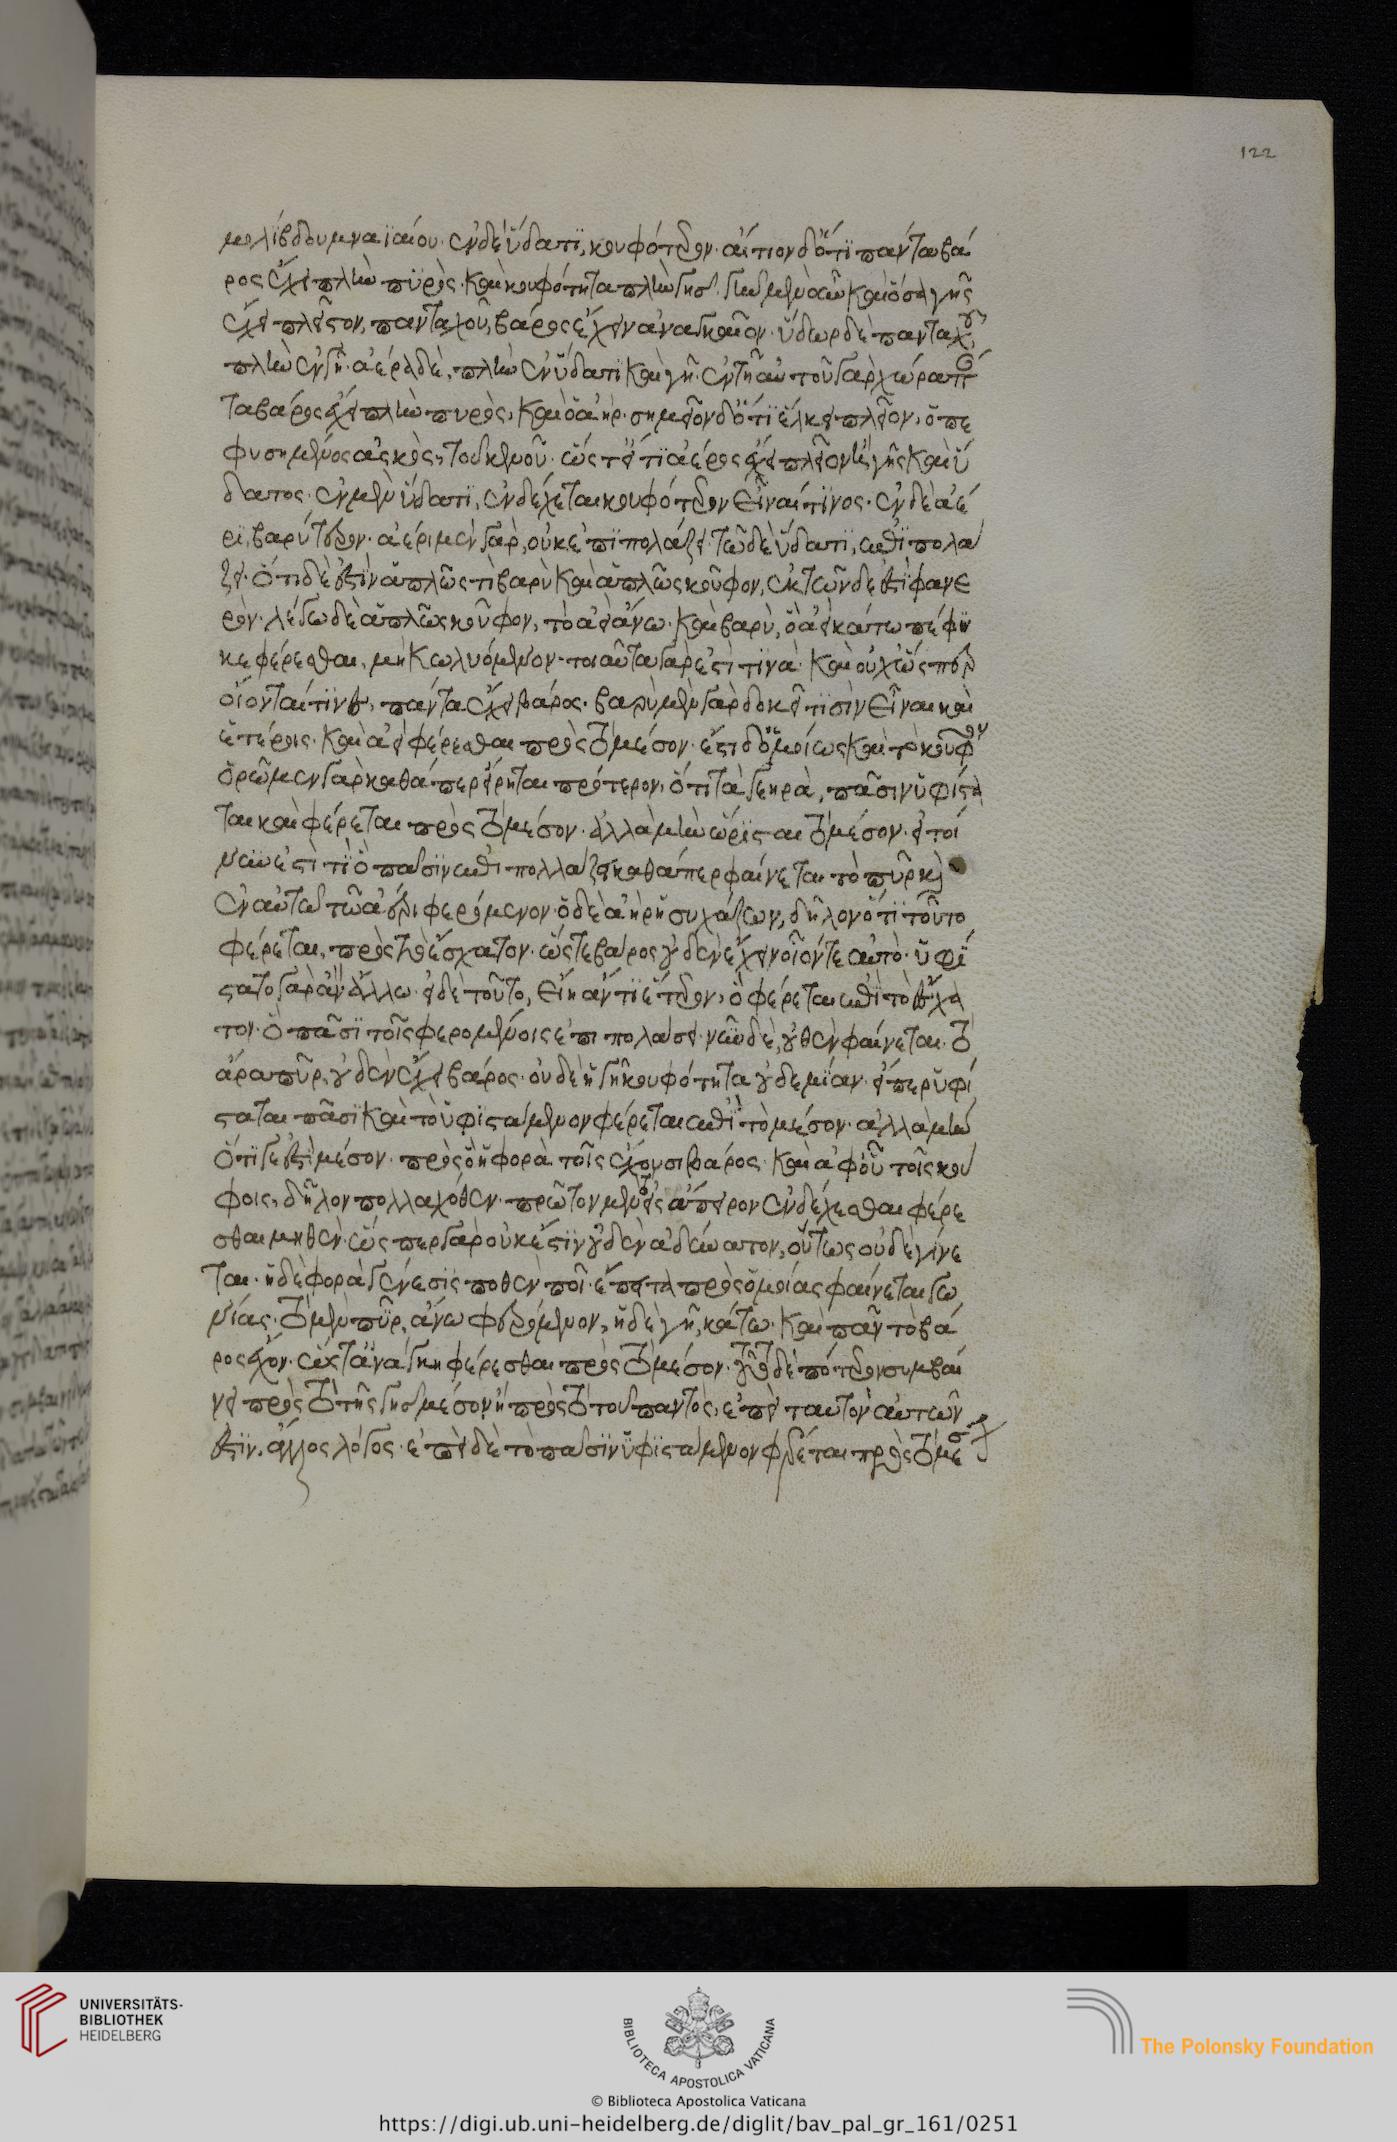 μολίβδου μναϊαίου· ἐν δὲ ὕδατι, κουφότερον· αἴτιον δ' ὅτι πάντα βά
ρος ἔχει πλὴν πυρὸς· καὶ κουφότητα πλὴν γῆς. γῆν μὲν οὖν καὶ ὅσα γῆς
ἔχει πλεῖστον, πανταχοῦ, βάρος ἔχειν ἀναγκαῖον· ὕδωρ δὲ πανταχοῦ
πλὴν ἐν γῆ· ἀέρα δὲ, πλὴν ἐν ὕδατι καὶ γῆ· ἐν τῆ αὑτοῦ γὰρ χώρα πάν
τα βάρος ἔχει πλὴν πυρὸς, καὶ ὁ ἀήρ· σημεῖον δ' ὅτι ἕλκει πλεῖον, ὁ πε
φυσημένος ἀσκὸς, τοῦ κενοῦ· ὥστ' εἴ τι ἀέρος ἔχει πλεῖον ἢ γῆς καὶ ὕ
δατος· ἐν μὲν ὕδατι, ἐνδέχεται κουφότερον εἶναί τινος· ἐν δὲ ἀέ
ρι, βαρύτερον· ἀέρι μὲν γὰρ, οὐκ ἐπιπολάζει· τῶ δὲ ὕδατι, ἐπιπολά
ζει· ὅτι δὲ ἐστὶν ἁπλῶς τὶ βαρὺ καὶ ἁπλῶς κοῦφον, ἐκ τῶνδε ἐστὶ φανε
ρόν· λέγω δὲ ἁπλῶς κοῦφον, τὸ ἀεὶ ἄνω· καὶ βαρὺ, ὃ ἀεὶ κάτω πέφυ
κε φέρεσθαι, μὴ κωλυόμενον· τοιαῦτα γὰρ ἐστὶ τινὰ· καὶ οὐχ ὥσπερ
οἴονταί τινες, πάντα ἔχει βάρος· βαρὺ μὲν γὰρ δοκεῖ τισὶν εἶναι καὶ
ἑτέροις· καὶ ἀεὶ φέρεσθαι πρὸς τὸ μέσον· ἔστι δ' ὁμοίως καὶ τὸ κοῦφον
ὁρῶμεν γὰρ καθάπερ εἴρηται πρότερον, ὅτι τὰ γεηρὰ, πᾶσιν ὑφίστα
ται καὶ φέρεται πρὸς τὸ μέσον· ἀλλὰ μὴν ὥρισται τὸ μέσον· εἰ τοί
νυν ἐστὶ τὶ ὃ πᾶσιν ἐπιπολλάζει καθάπερ φαίνεται τὸ πῦρ καὶ
ἐν αὐτῶ τῶ ἀέρι φερόμενον· ὁ δὲ ἀὴρ ἡσυχάζων, δῆλον ὅτι τοῦτο
φέρεται, πρὸς τὸ ἔσχατον· ὥστε βάρος οὐδὲν ἔχειν οἷόν τε αὐτὸ· ὑφί
στατο γὰρ ἂν ἄλλω· εἰ δὲ τοῦτο, εἴη ἄν τι ἕτερον, ὃ φέρεται ἐπὶ τὸ ἔσχα
τον· ὃ πᾶσι τοῖς φερομένοις ἐπιπολάσει· νῦν δὲ, οὐθὲν φαίνεται· τὸ
ἄρα πῦρ, οὐδὲν ἔχει βάρος· οὐδὲ ἡ γῆ κουφότητα οὐδεμίαν· εἴπερ ὑφί
σταται πᾶσι καὶ τὸ ὑφιστάμενον φέρεται ἐπὶ τὸ μέσον· ἀλλὰ μὴν
ὅτι γε ἐστὶ μέσον· πρὸς ὃ ἡ φορὰ τοῖς ἔχουσι βάρος· καὶ ἀφ' οὗ τοῖς κού
φοις, δῆλον πολλαχόθεν· πρῶτον μὲν τῶ εἰς ἄπειρον ἐνδέχεσθαι φέρε
σθαι μηθὲν· ὥσπερ γὰρ οὐκ ἔστιν οὐδὲν ἀδύνατον, οὕτως οὐδὲ γίνε
ται· ἡ δὲ φορὰ γένεσις ποθὲν ποῖ· ἔπειτα πρὸς ὁμοίας φαίνεται γω
νίας· τὸ μὲν πῦρ, ἄνω φερόμενον, ἡ δὲ γῆ, κάτω· καὶ πᾶν τὸ βά
ρος ἔχον· ὥστ' ἀνάγκη φέρεσθαι πρὸς τὸ μέσον· τοῦτο δὲ πότερον συμβαί
νει πρὸς τὸ τῆς γῆς μέσον, ἢ πρὸς τὸ τοῦ παντὸς, ἐπεὶ ταυτὸν αὐτῶν
ἐστιν, ἄλλος λόγος· ἐπεὶ δὲ τὸ πᾶσιν ὑφιστάμενον φέρεται πρὸς τὸ μέσον
122
UNIVERSITÄTS-
BIBLIOTHEK
HEIDELBERG
BIBLIOTECA APOSTOLICA VATICANA
The Polonsky Foundation
© Biblioteca Apostolica Vaticana
https://digi.ub.uni-heidelberg.de/diglit/bav_pal_gr_161/0251